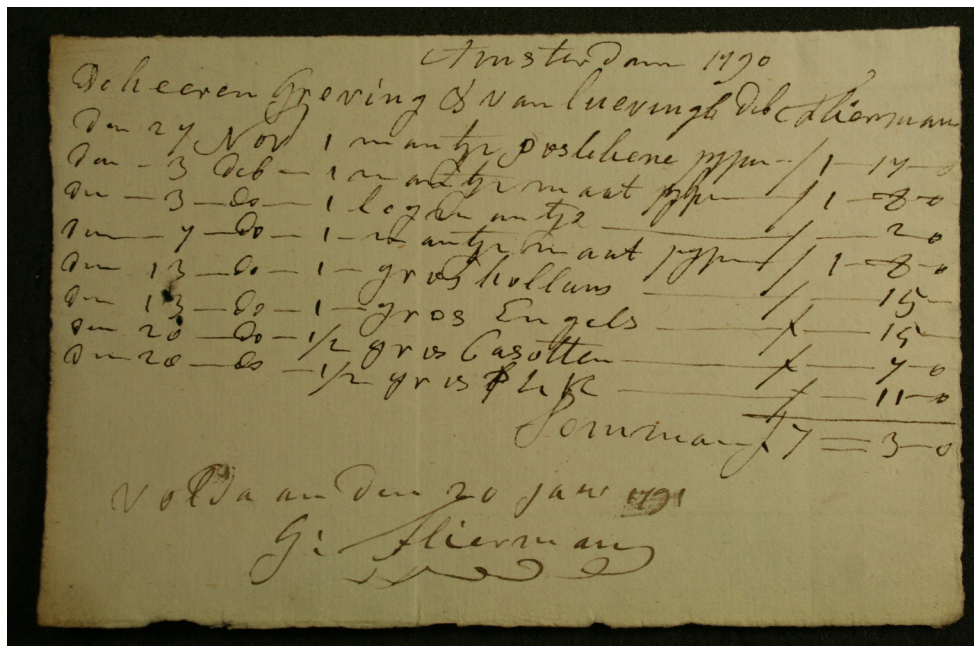 Amsterdam 1790
De heeren Greving & van luevingh Deb Flierman
den 27 Nov 1 mantje posleliene pypen f 1 - 17 - 0
den - 3 deb - 1 mantje maat pypen f 1 - 8 - 0
den - 3 - do - 1 leg mantje f - 2 - 0
den - 7 - do - 1 - mantje maat pypen f 1 - 8 - 0
den 13 - do - 1 - gros hollans f - 15 -
den 13 - do - 1 - gros Engels f - 15
den 20 - do - 1/2 gros Casotten f - 7 - 0
den 20 - do - 1/2 gros f - 11 - 0
Somma f 7 = 3 - 0
Voldaan den 20 jan 1791
G: Flierman